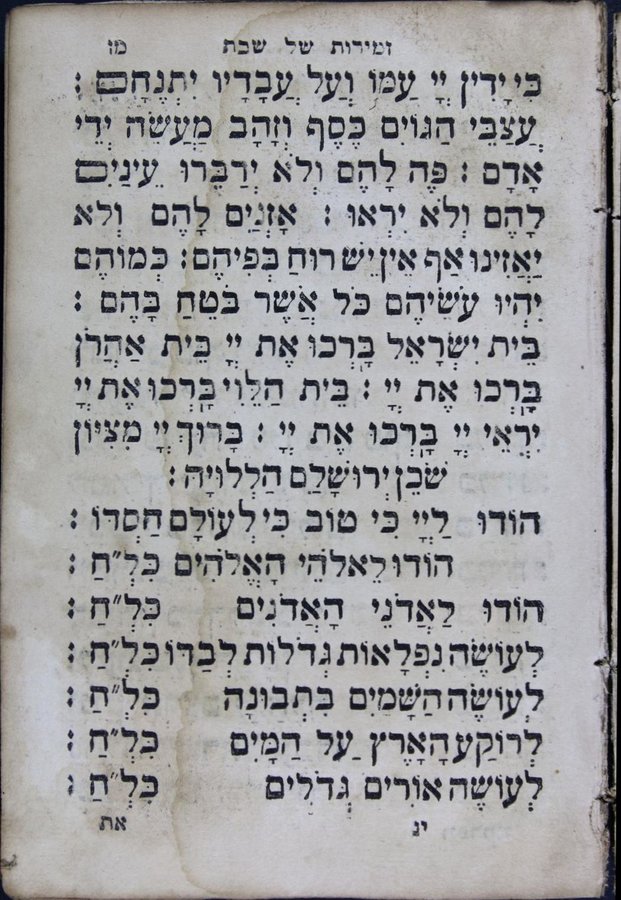 זמירות של שבת מז
כִּי יָדִין יְיָ עַמּוֹ וְעַל עֲבָדָיו יִתְנֶחָם :
עֲצַבֵּי הַגּוֹיִם כֶּסֶף וְזָהָב מַעֲשֵׂה יְדֵי
אָדָם : פֶּה לָהֶם וְלֹא יְדַבֵּרוּ עֵינַיִם
לָהֶם וְלֹא יִרְאוּ : אָזְנַיִם לָהֶם וְלֹא
יַאֲזִינוּ אַף אֵין יֶשׁ רוּחַ בְּפִיהֶם : כְּמוֹהֶם
יִהְיוּ עֹשֵׂיהֶם כֹּל אֲשֶׁר בֹּטֵחַ בָּהֶם :
בֵּית יִשְׂרָאֵל בָּרְכוּ אֶת יְיָ בֵּית אַהֲרֹן
בָּרְכוּ אֶת יְיָ : בֵּית הַלֵּוִי בָּרְכוּ אֶת יְיָ
יִרְאֵי יְיָ בָּרְכוּ אֶת יְיָ : בָּרוּךְ יְיָ מִצִּיּוֹן
שֹׁכֵן יְרוּשָׁלַםִ הַלְלוּיָהּ :
הוֹדוּ לַיְיָ כִּי טוֹב כִּי לְעוֹלָם חַסְדּוֹ :
הוֹדוּ לֵאלֹהֵי הָאֱלֹהִים כִּלְ״חַ :
הוֹדוּ לַאֲדֹנֵי הָאֲדֹנִים כִּלְ״חַ :
לְעוֹשֵׂה נִפְלָאוֹת גְּדֹלוֹת לְבַדּוֹ כִּלְ״חַ :
לְעוֹשֵׂה הַשָּׁמַיִם בִּתְבוּנָה כִּלְ״חַ :
לְרוֹקַע הָאָרֶץ עַל הַמָּיִם כִּלְ״חַ :
לְעוֹשֵׂה אוֹרִים גְּדֹלִים כִּלְ״חַ :
יג את